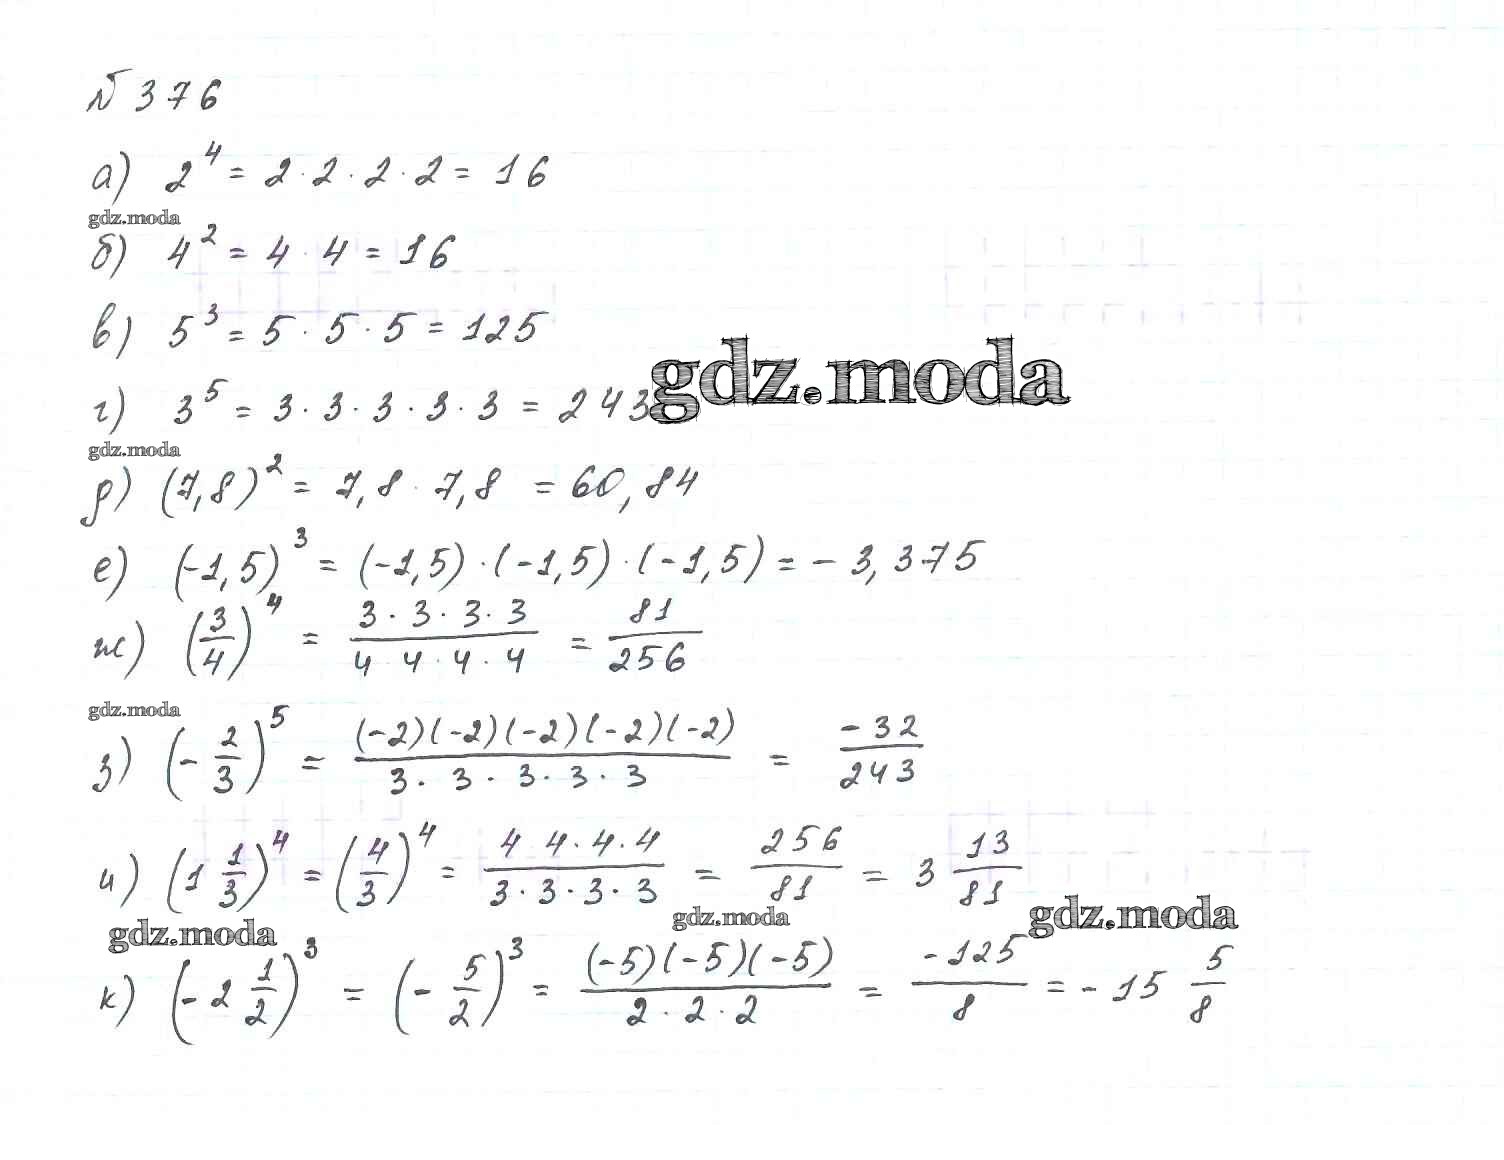 № 376
а) 2⁴ = 2 · 2 · 2 · 2 = 16
gdz.moda
б) 4² = 4 · 4 = 16
в) 5³ = 5 · 5 · 5 = 125
gdz.moda
г) 3⁵ = 3 · 3 · 3 · 3 · 3 = 243
gdz.moda
д) (7,8)² = 7,8 · 7,8 = 60,84
е) (-1,5)³ = (-1,5) · (-1,5) · (-1,5) = - 3,375
ж) (3/4)⁴ = (3 · 3 · 3 · 3)/(4 · 4 · 4 · 4) = 81/256
gdz.moda
з) (- 2/3)⁵ = ((-2)(-2)(-2)(-2)(-2))/(3 · 3 · 3 · 3 · 3) = -32/243
и) (1 1/3)⁴ = (4/3)⁴ = (4 · 4 · 4 · 4)/(3 · 3 · 3 · 3) = 256/81 = 3 13/81
gdz.moda gdz.moda gdz.moda
к) (- 2 1/2)³ = (- 5/2)³ = ((-5)(-5)(-5))/(2 · 2 · 2) = -125/8 = - 15 5/8